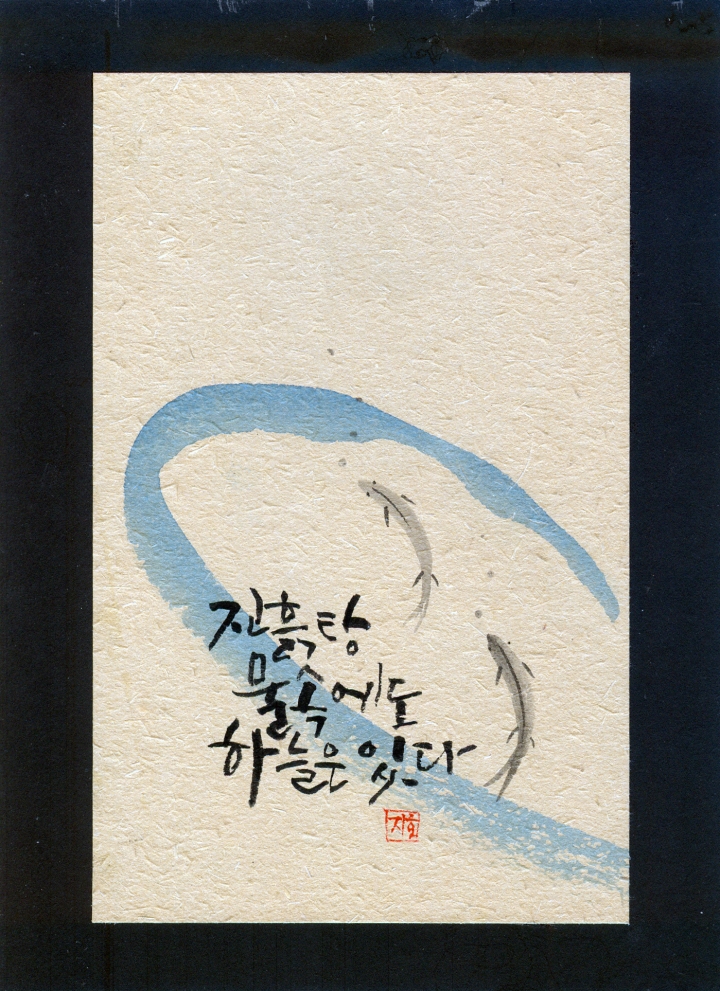 진흙탕
물속에도
하늘은 있다
지호